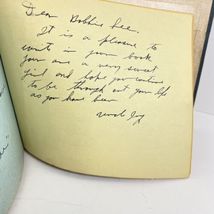 Dear Bobbie Lee.
It is a pleasure to
write in your book
your are a very sweet
girl and hope you continue
to be through out your life
as you have been